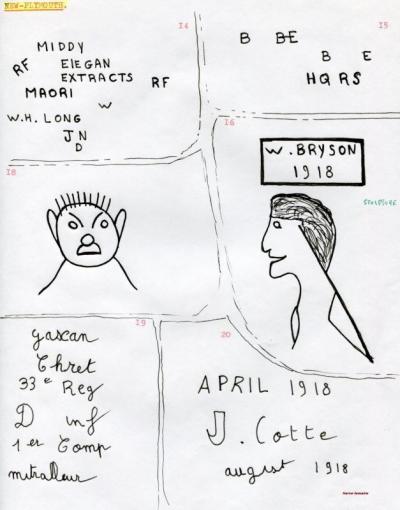 NEW-PLYMOUTH.
14
MIDDY
RF ElEGAN
EXTRACTS RF
MAORI
W
W.H. LONG
JN
D
15
B BE
B E
HQRS
16
W. BRYSON
1918
SCULPTURE
18
19
gascan
Chret
33e Reg
D inf
1er Comp
mitralleur
20
APRIL 1918
J. Cotte
august 1918